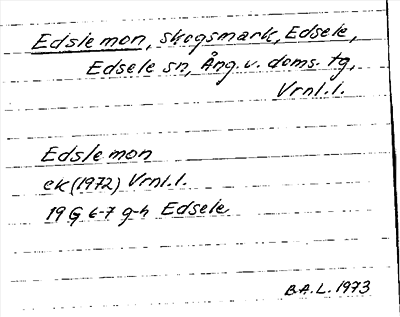 Edslemon, skogsmark, Edsele,
Edsele sn, Ång. v. doms. tg,
Vrnl. l.
Edslemon
ek (1972) Vrnl. l.
19 G 6-7 g-h Edsele
B.A.L. 1973